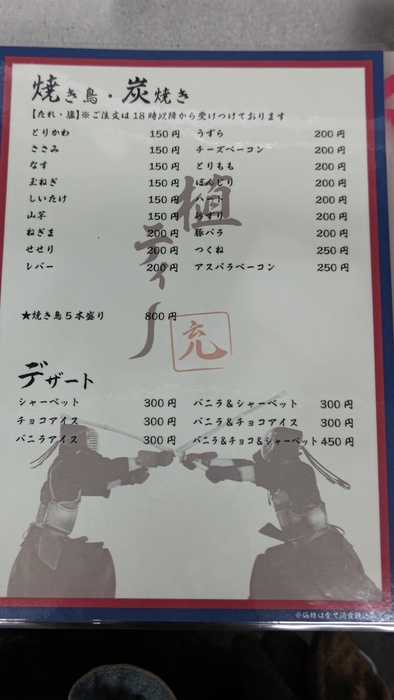 焼き鳥・炭焼き
【たれ・塩】※ご注文は18時以降から受けつけております
とりかわ 150円 うずら 200円
ささみ 150円 チーズベーコン 200円
なす 150円 とりもも 200円
玉ねぎ 150円 ぼんじり 200円
しいたけ 150円 ハート 200円
山芋 150円 砂ずり 200円
ねぎま 200円 豚バラ 200円
せせり 200円 つくね 250円
レバー 200円 アスパラベーコン 250円
★焼き鳥5本盛り 800円
デザート
シャーベット 300円 バニラ&シャーベット 300円
チョコアイス 300円 バニラ&チョコアイス 300円
バニラアイス 300円 バニラ&チョコ&シャーベット 450円
※価格は全て消費税